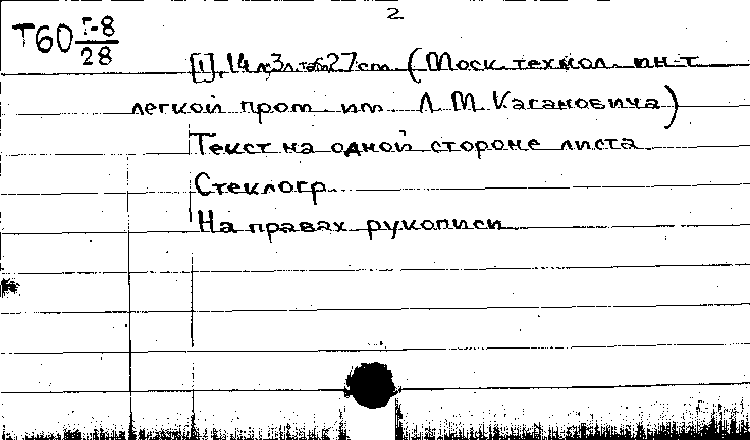 2
Т60 Г-8
28
[1], 14 л, 3 л. табл 27 cm (Моск. технол. ин-т
легкой пром. им. Л. М. Кагановича)
Текст на одной стороне листа
Стеклогр.
На правах рукописи